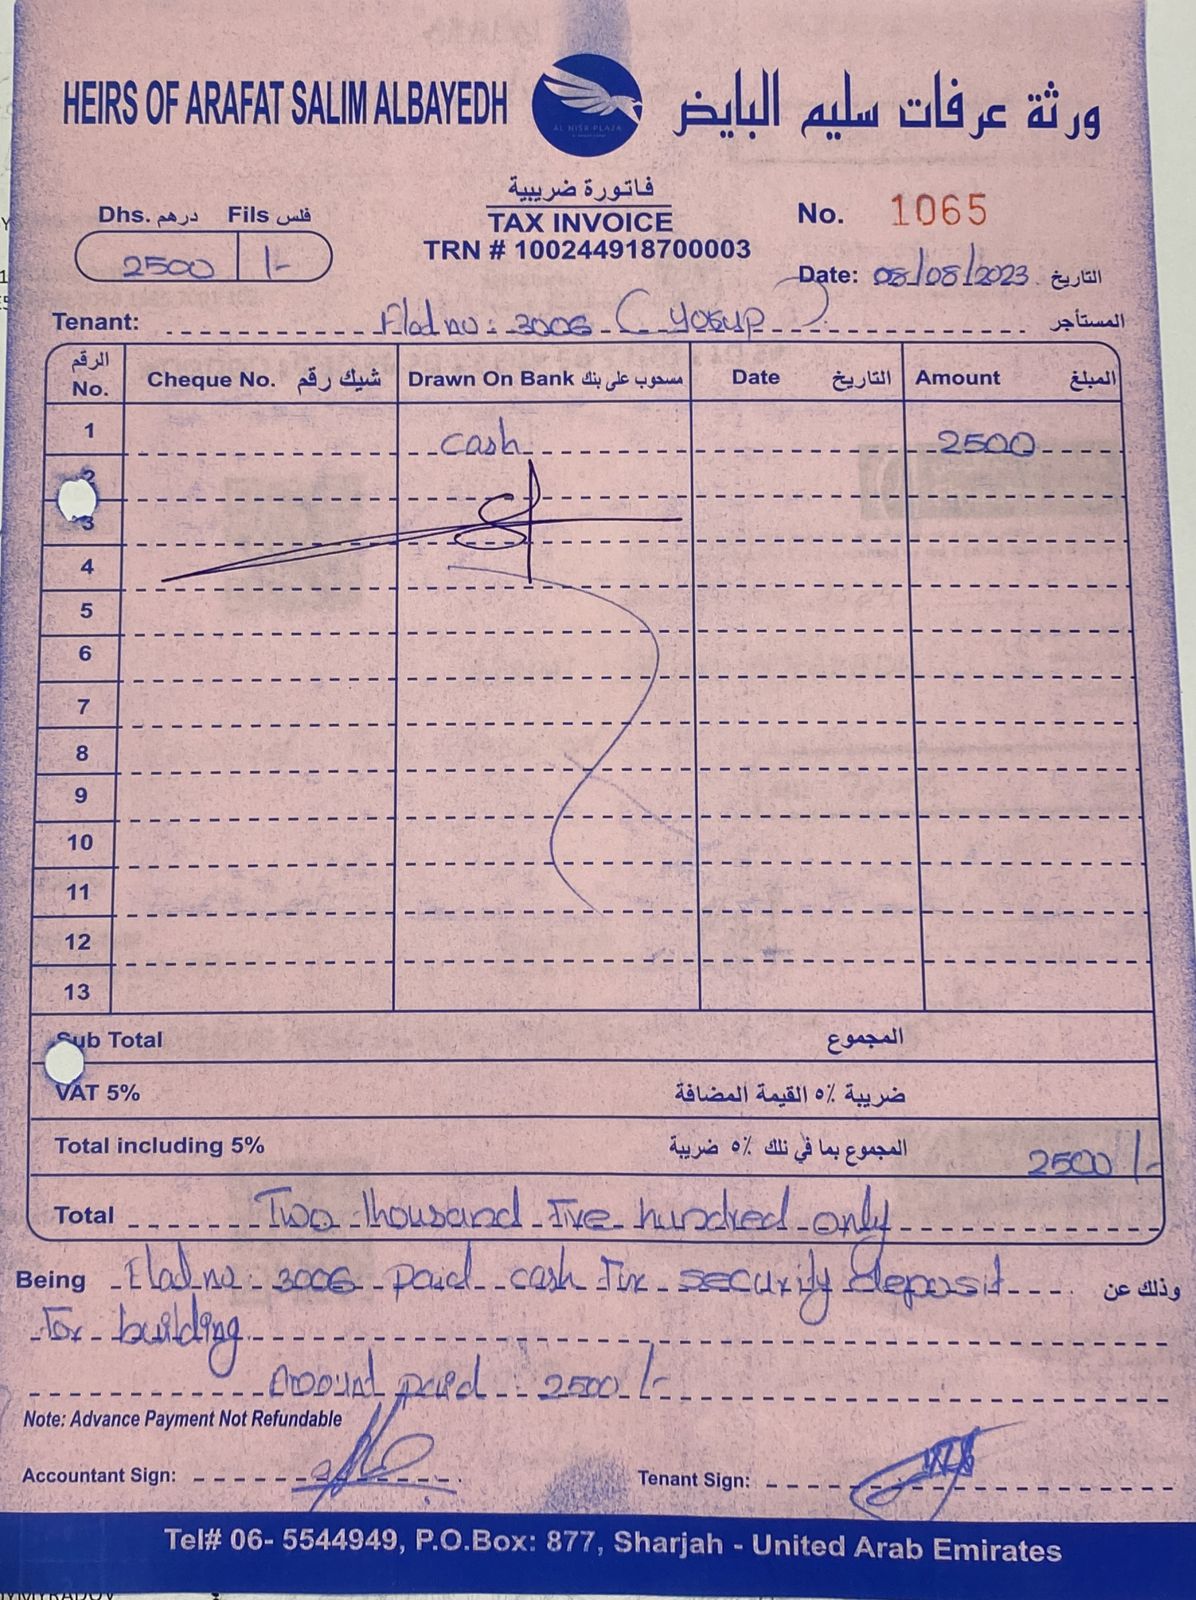 HEIRS OF ARAFAT SALIM ALBAYEDH
AL NISR PLAZA
ورثة عرفات سليم البايض
فاتورة ضريبية
TAX INVOICE
TRN # 100244918700003
Dhs. درهم Fils فلس
2500 /-
No. 1065
Date: 08/08/2023 التاريخ
Tenant: Flad no : 3006 ( YOSUP ) المستأجر
الرقم No. Cheque No. شيك رقم Drawn On Bank مسحوب على بنك Date التاريخ Amount المبلغ
1 cash 2500
2
3
4
5
6
7
8
9
10
11
12
13
Sub Total المجموع
VAT 5% ضريبة ٥٪ القيمة المضافة
Total including 5% المجموع بما في ذلك ٥٪ ضريبة 2500 /-
Total Two thousand Five hundred only
Being Flad no : 3006 paid cash For security deposit وذلك عن
For building
Amount paid : 2500 /-
Note: Advance Payment Not Refundable
Accountant Sign:
Tenant Sign:
Tel# 06- 5544949, P.O.Box: 877, Sharjah - United Arab Emirates